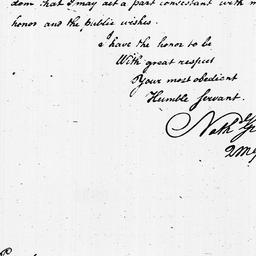 dom that I may act a part consistant with m
honor and the public wishes.
I have the honor to be
With great respect
Your most obedient
Humble Servant.
Nath.